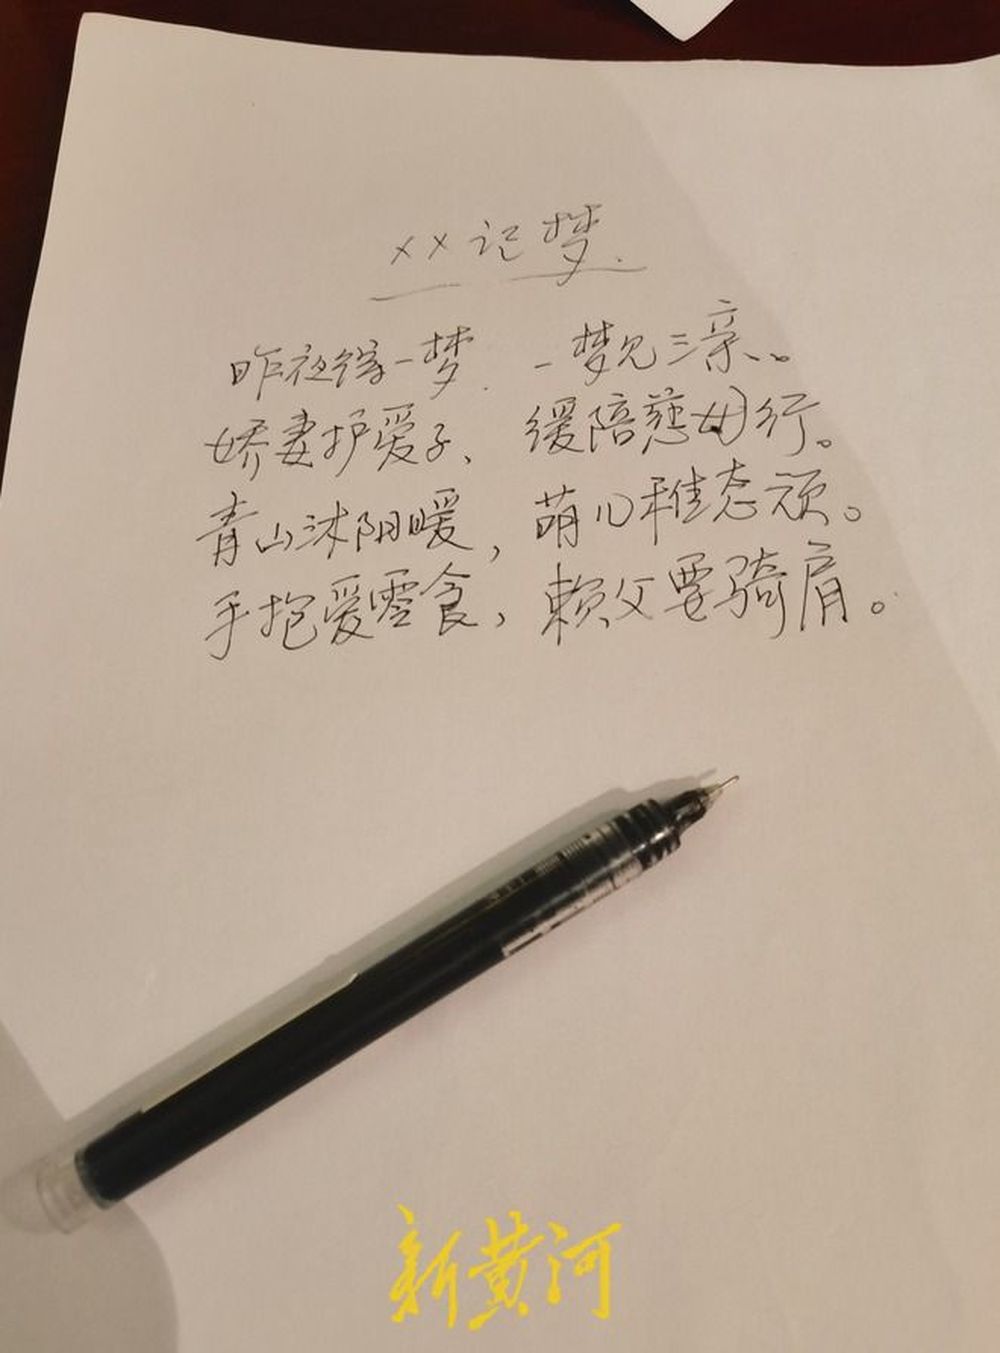 ××记梦.
昨夜缘一梦. 一梦见三亲。
娇妻护爱子、缓陪慈母行。
青山沐阳暖，萌儿稚态顽。
手抱爱零食，赖父要骑肩。
新黄河